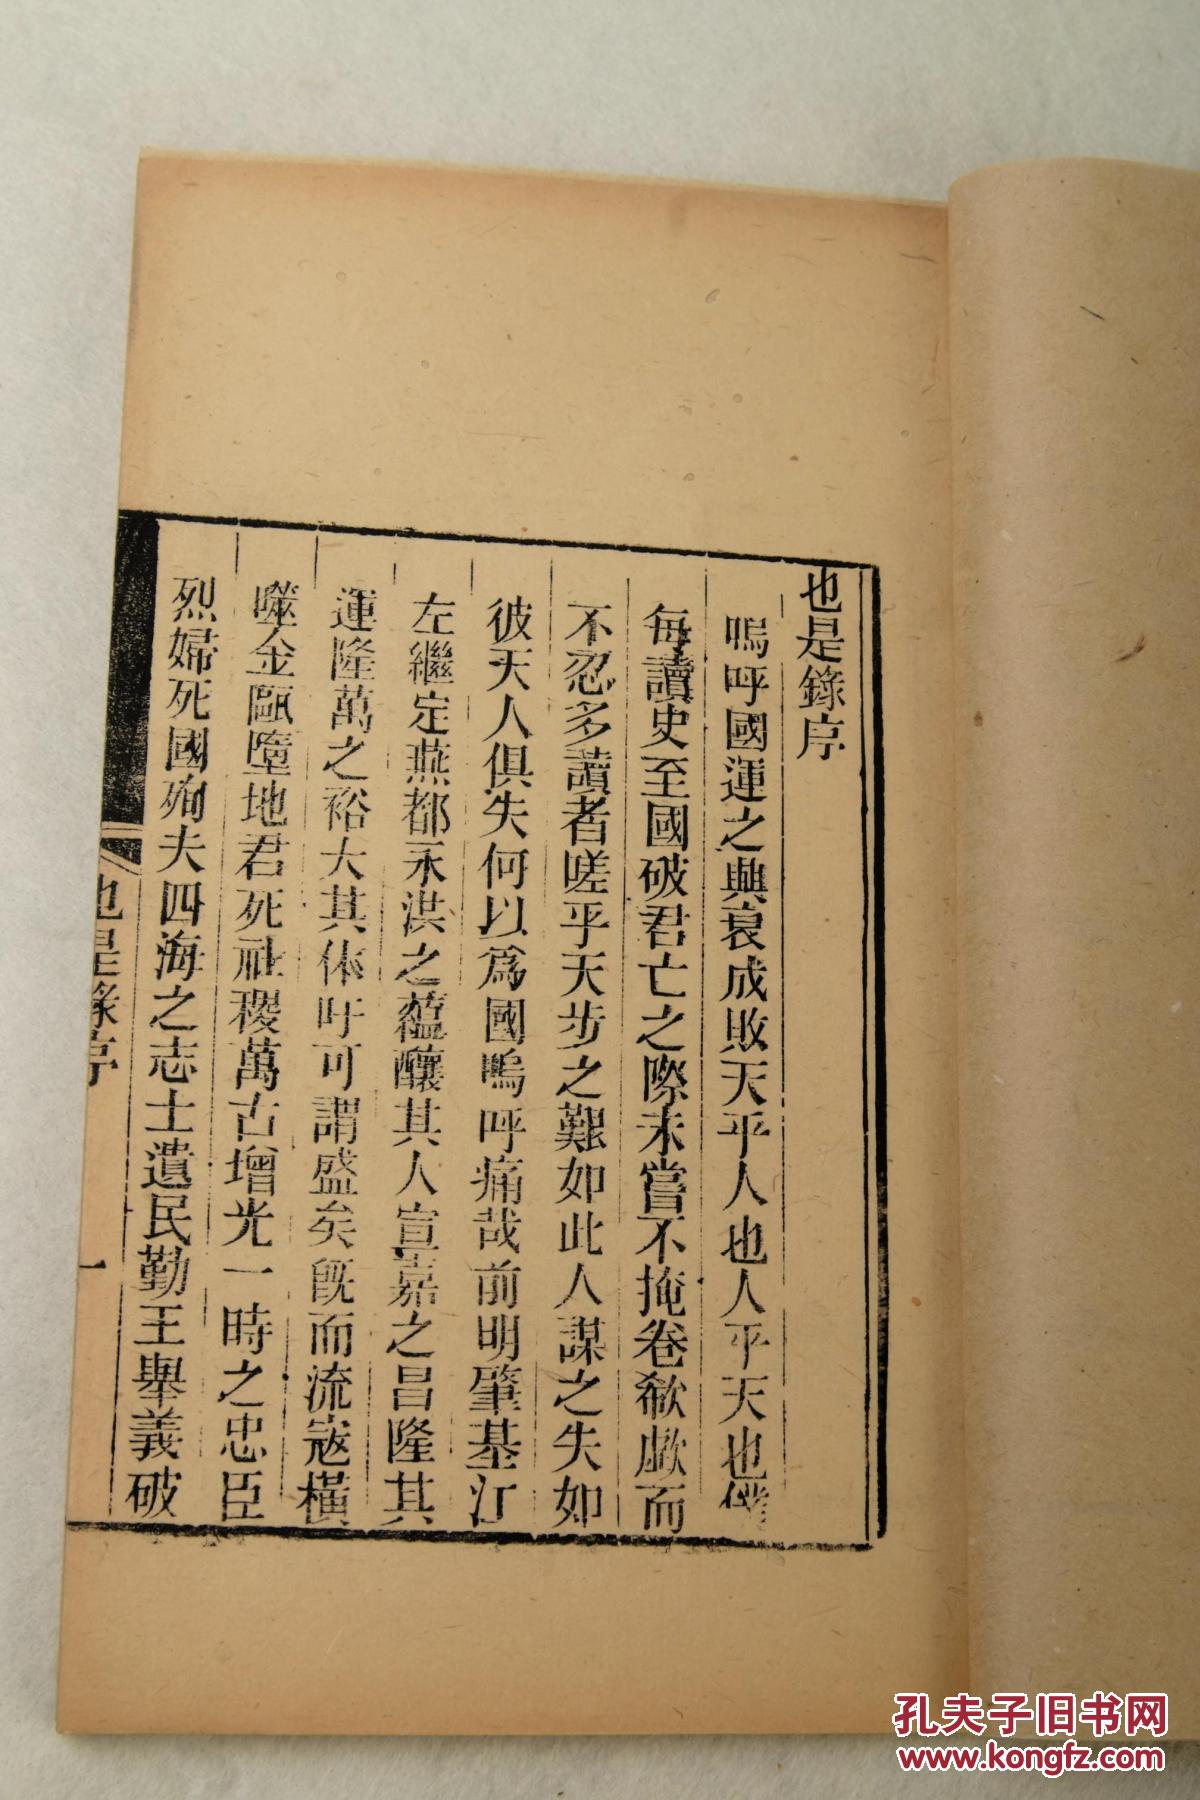 也是錄序
嗚呼國運之興衰成敗天乎人也人乎天也僕
每讀史至國破君亡之際未嘗不掩卷欷歔而
不忍多讀者嗟乎天步之艱如此人謀之失如
彼天人俱失何以爲國嗚呼痛哉前明肇基江
左繼定燕都永洪之蘊釀其人宣嘉之昌隆其
運隆萬之裕大其休吁可謂盛矣旣而流寇橫
噬金甌墮地君死社稷萬古增光一時之忠臣
烈婦死國殉夫四海之志士遺民勤王舉義破
也是錄序
一
孔夫子旧书网
www.kongfz.com